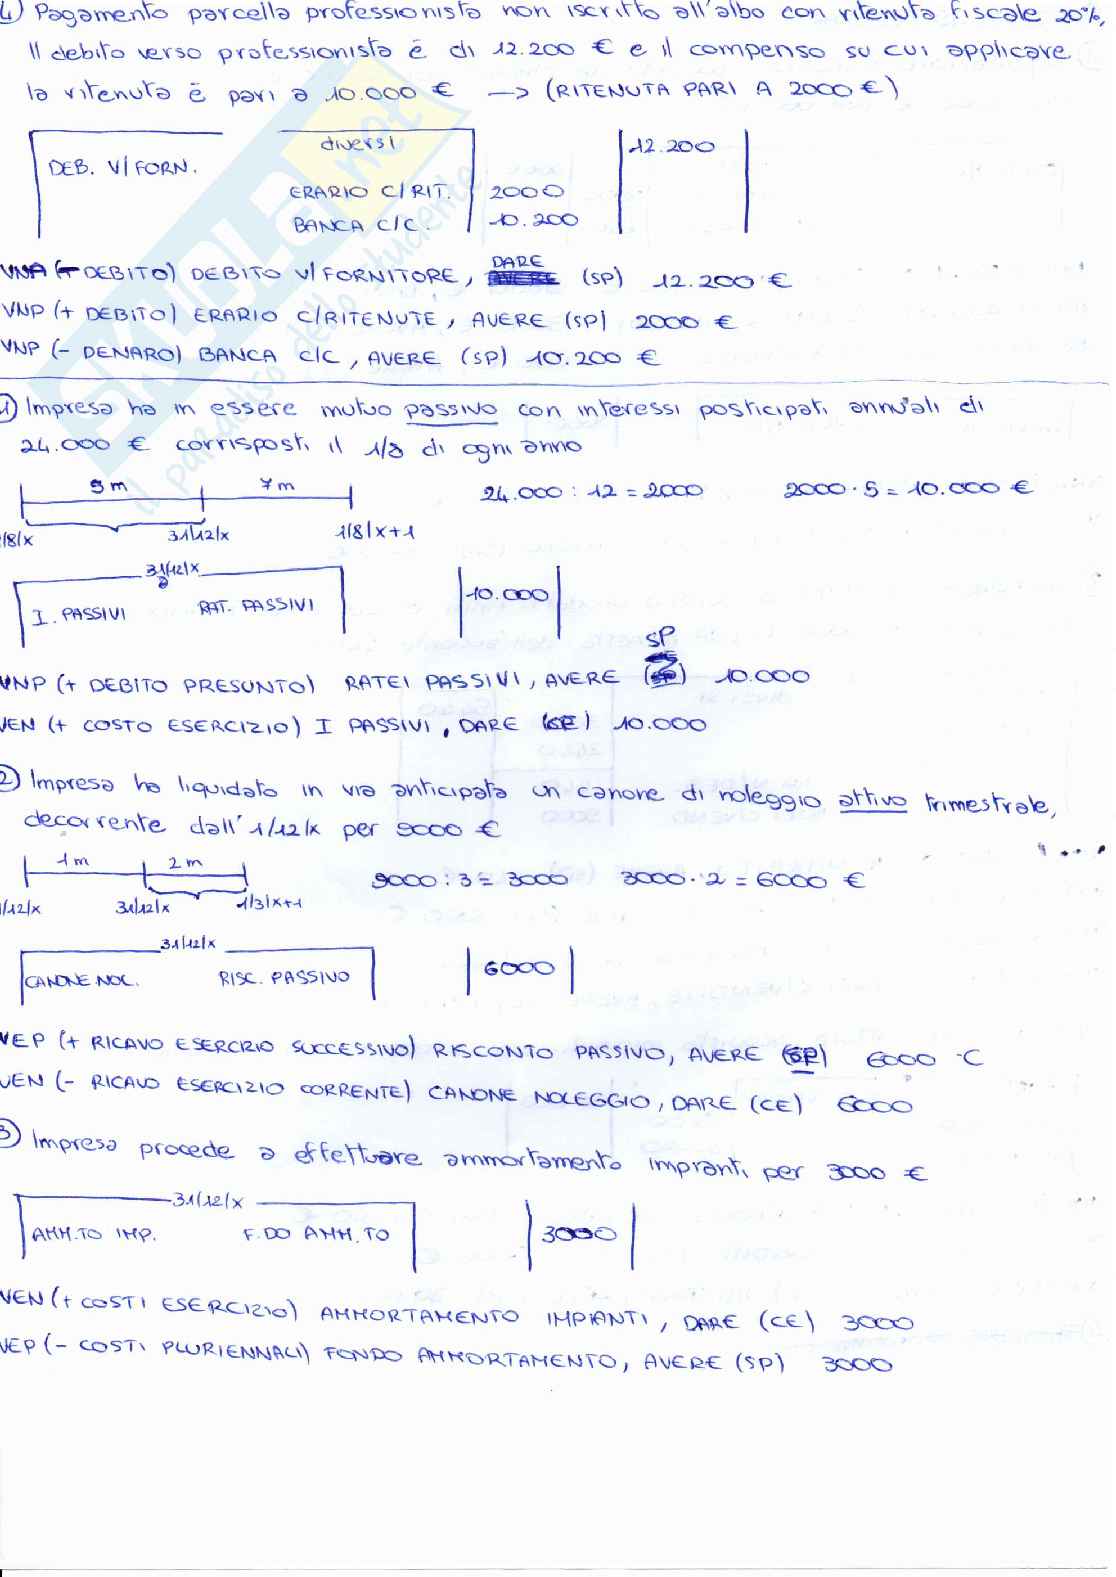 4) Pagamento parcella professionista non iscritto all'albo con ritenuta fiscale 20%,
Il debito verso professionista è di 12.200 € e il compenso su cui applicare
la ritenuta è pari a 10.000 € → (RITENUTA PARI A 2000 €)
diversi 12.200
DEB. V/FORN.
ERARIO C/RIT. 2000
BANCA C/C. 10.200
VNA (- DEBITO) DEBITO V/FORNITORE, DARE (SP) 12.200 €
VNP (+ DEBITO) ERARIO C/RITENUTE, AVERE (SP) 2000 €
VNP (- DENARO) BANCA C/C, AVERE (SP) 10.200 €
1) Impresa ha in essere mutuo passivo con interessi posticipati annuali di
24.000 € corrisposti il 1/8 di ogni anno
5m 7m 24.000 : 12 = 2000 2000 · 5 = 10.000 €
1/8/x 31/12/x 1/8/x+1
31/12/x
a
I. PASSIVI RAT. PASSIVI 10.000
SP
VNP (+ DEBITO PRESUNTO) RATEI PASSIVI, AVERE (SP) 10.000
VEN (+ COSTO ESERCIZIO) I PASSIVI, DARE (CE) 10.000
2) Impresa ha liquidato in via anticipata un canone di noleggio attivo trimestrale,
decorrente dall'1/12/x per 9000 €
1m 2m 9000 : 3 = 3000 3000 · 2 = 6000 €
1/12/x 31/12/x 1/3/x+1
31/12/x
CANONE NOL. RISC. PASSIVO 6000
VEP (+ RICAVO ESERCIZIO SUCCESSIVO) RISCONTO PASSIVO, AVERE (SP) 6000 €
VEN (- RICAVO ESERCIZIO CORRENTE) CANONE NOLEGGIO, DARE (CE) 6000
3) Impresa procede a effettuare ammortamento impianti per 3000 €
31/12/x
AMM.TO IMP. F.DO AMM.TO 3000
VEN (+ COSTI ESERCIZIO) AMMORTAMENTO IMPIANTI, DARE (CE) 3000
VEP (- COSTI PLURIENNALI) FONDO AMMORTAMENTO, AVERE (SP) 3000
SKUOLA.net
il paradiso dello studente